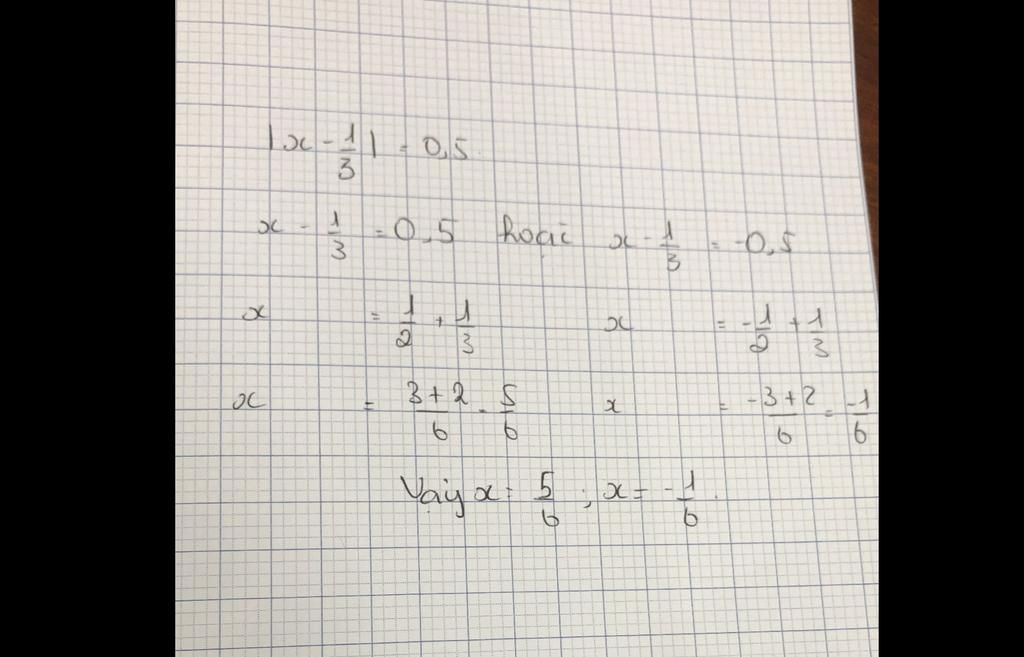 |x - 1/3| = 0,5
x - 1/3 = 0,5 hoặc x - 1/3 = -0,5
x = 1/2 + 1/3 x = -1/2 + 1/3
x = (3+2)/6 = 5/6 x = (-3+2)/6 = -1/6
Vậy x = 5/6 ; x = -1/6.